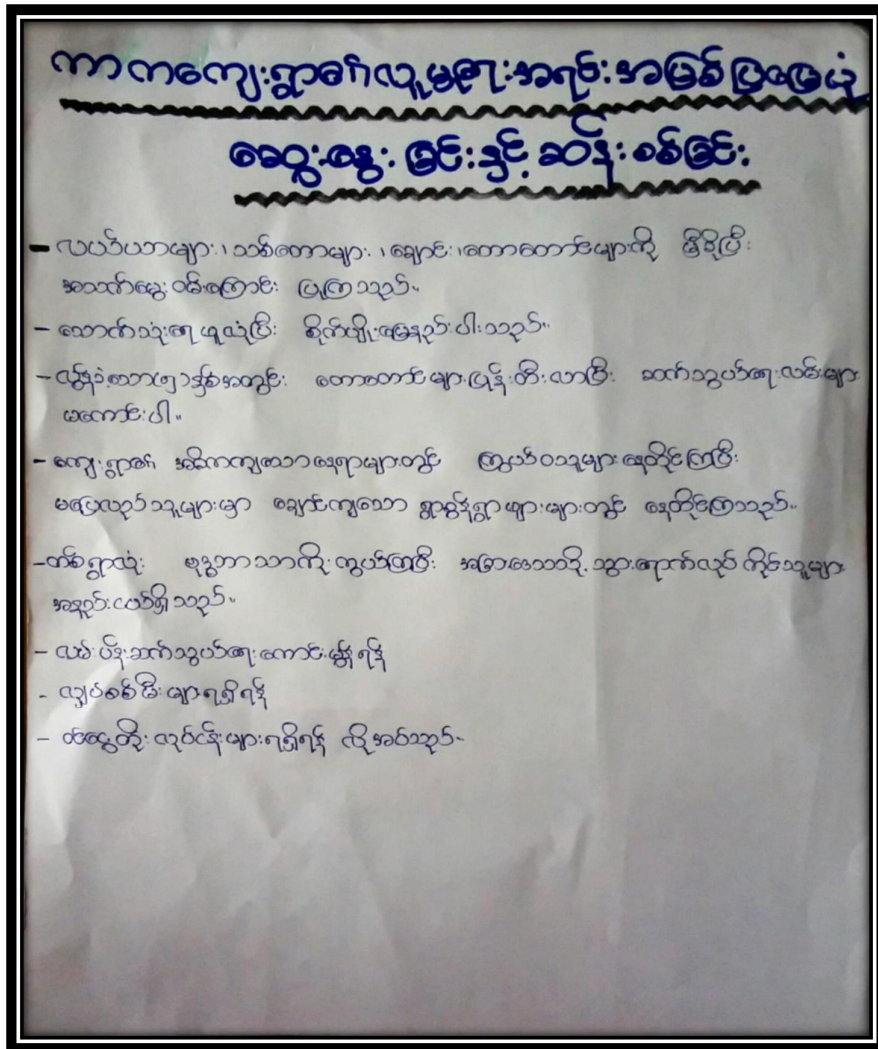 ကာကကျေးရွာ၏လူမှုရေးအရင်းအမြစ်ပြမြေပုံ
ဆွေးနွေးခြင်းနှင့်ဆန်းစစ်ခြင်း
- လယ်ယာများ၊သစ်တောများ၊ချောင်း၊တောတောင်များကို မှီခိုပြီး
အသက်မွေးဝမ်းကြောင်း ပြုကြသည်။
- သောက်သုံးရေယူသုံးပြီး စိုက်ပျိုးမြေနည်းပါးသည်။
- လွန်ခဲ့သော(၅)နှစ်အတွင်း တောတောင်များပြုန်းတီးလာပြီး ဆက်သွယ်ရေးလမ်းများ
မကောင်းပါ။
- ကျေးရွာ၏ အဓိကကျသောနေရာများတွင် ကြွယ်ဝသူများနေထိုင်ကြပြီး
မပြေလည်သူများမှာ ချောင်ကျသော ရွာစွန်ရွာဖျားများတွင် နေထိုင်ကြသည်။
- တစ်ရွာလုံး ဗုဒ္ဓဘာသာကိုးကွယ်ကြပြီး အခြားဒေသသို့သွားရောက်လုပ်ကိုင်သူများ
အနည်းငယ်ရှိသည်။
- လမ်းပန်းဆက်သွယ်ရေးကောင်းမွန်ရန်
- လျှပ်စစ်မီးများရရှိရန်
- ဝင်ငွေတိုးလုပ်ငန်းများရရှိရန် လိုအပ်သည်။